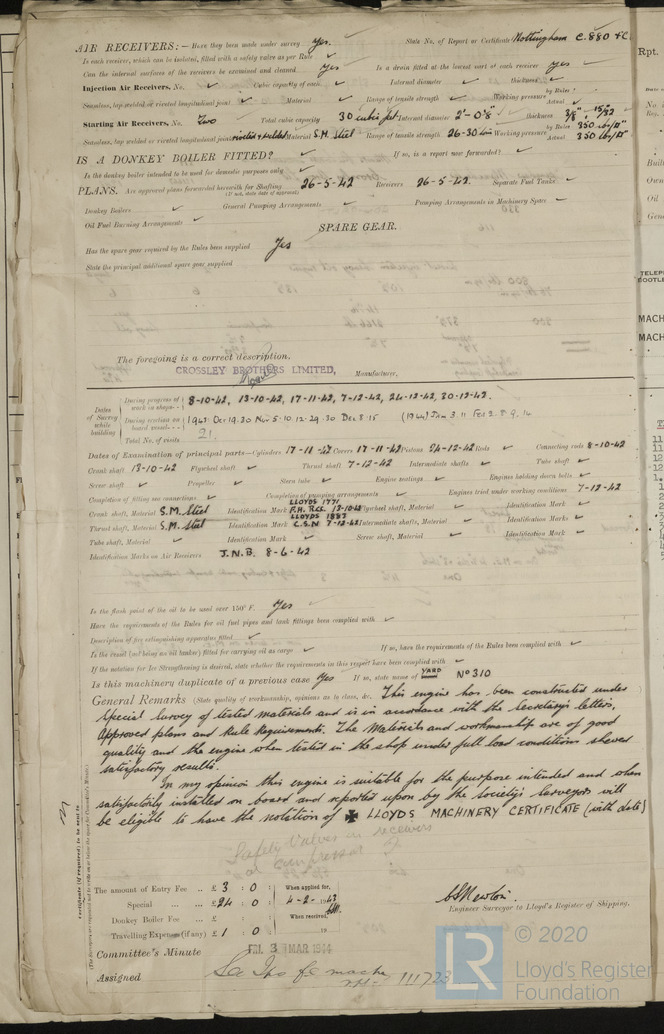 AIR RECEIVERS:— Have they been made under survey Yes. State No. of Report or Certificate Nottingham C.880 +C.
Is each receiver, which can be isolated, fitted with a safety valve as per Rule Yes Is a drain fitted at the lowest part of each receiver Yes
Can the internal surfaces of the receivers be examined and cleaned
Injection Air Receivers, No. Cubic capacity of each Internal diameter thickness
Seamless, lap welded or riveted longitudinal joint Material Range of tensile strength Working pressure by Rules Actual
Starting Air Receivers, No. Two Total cubic capacity 30 cubic feet Internal diameter 2'-0⅝" thickness 3/8", 15/32"
Seamless, lap welded or riveted longitudinal joint riveted & welded Material S.M. Steel Range of tensile strength 26-30 Working pressure by Rules 350 lbs/□" Actual 350 lbs/□"
IS A DONKEY BOILER FITTED? If so, is a report now forwarded?
Is the donkey boiler intended to be used for domestic purposes only
PLANS. Are approved plans forwarded herewith for Shafting 26-5-42 Receivers 26-5-42. Separate Fuel Tanks
(If not, state date of approval)
Donkey Boilers General Pumping Arrangements Pumping Arrangements in Machinery Space
Oil Fuel Burning Arrangements
SPARE GEAR.
Has the spare gear required by the Rules been supplied Yes
State the principal additional spare gear supplied
The foregoing is a correct description,
CROSSLEY BROTHERS LIMITED, Manufacturer.
Dates of Survey while building
During progress of work in shops - - 8-10-42, 13-10-42, 17-11-42, 7-12-42, 24-12-42, 30-12-42.
During erection on board vessel - - - 1943. Oct 19.30 Nov 5.10.12.29.30 Dec 8.15 (1944) Jan 3.11 Feb 2.8.9,14
Total No. of visits 21.
Dates of Examination of principal parts—Cylinders 17-11-42 Covers 17-11-42 Pistons 24-12-42 Rods Connecting rods 8-10-42
Crank shaft 13-10-42 Flywheel shaft Thrust shaft 7-12-42 Intermediate shafts Tube shaft
Screw shaft Propeller Stern tube Engine seatings Engines holding down bolts
Completion of fitting sea connections Completion of pumping arrangements Engines tried under working conditions 7-12-42
Crank shaft, Material S.M. Steel Identification Mark LLOYDS 1771 F.H. RCS. 13-10-42 Flywheel shaft, Material Identification Mark
Thrust shaft, Material S.M. Steel Identification Mark LLOYDS 1887 C.S.N 7-12-42 Intermediate shafts, Material Identification Marks
Tube shaft, Material Identification Mark Screw shaft, Material Identification Mark
Identification Marks on Air Receivers J.N.B. 8-6-42
Is the flash point of the oil to be used over 150° F. Yes
Have the requirements of the Rules for oil fuel pipes and tank fittings been complied with
Description of fire extinguishing apparatus fitted
Is the vessel (not being an oil tanker) fitted for carrying oil as cargo If so, have the requirements of the Rules been complied with
If the notation for Ice Strengthening is desired, state whether the requirements in this respect have been complied with
Is this machinery duplicate of a previous case Yes If so, state name of YARD No 310
General Remarks (State quality of workmanship, opinions as to class, &c. This engine has been constructed under
special survey of tested materials and is in accordance with the Secretary's letters,
approved plans and Rule Requirements. The Materials and workmanship are of good
quality and the engine when tested in the shop under full load conditions showed
satisfactory results.
In my opinion this engine is suitable for the purpose intended and when
satisfactorily installed on board and reported upon by the Society's Surveyors will
be eligible to have the notation of ✠ LLOYDS MACHINERY CERTIFICATE (with date)
Safety Valves on receivers
The amount of Entry Fee .. £ 3 : 0 : When applied for,
Special .. .. £24 : 0 : 4-2-1943
Donkey Boiler Fee .. £ : : When received,
Travelling Expenses (if any) £ 1 : 0 : 19
C.S. Newton.
Engineer Surveyor to Lloyd's Register of Shipping.
Committee's Minute FRI. 3 MAR 1944
Assigned See 111723
Certificate (if required) to be sent to
Rpt.
TELEP
BOOTLE
MACH
MACH
LR © 2020
Lloyd's Register
Foundation